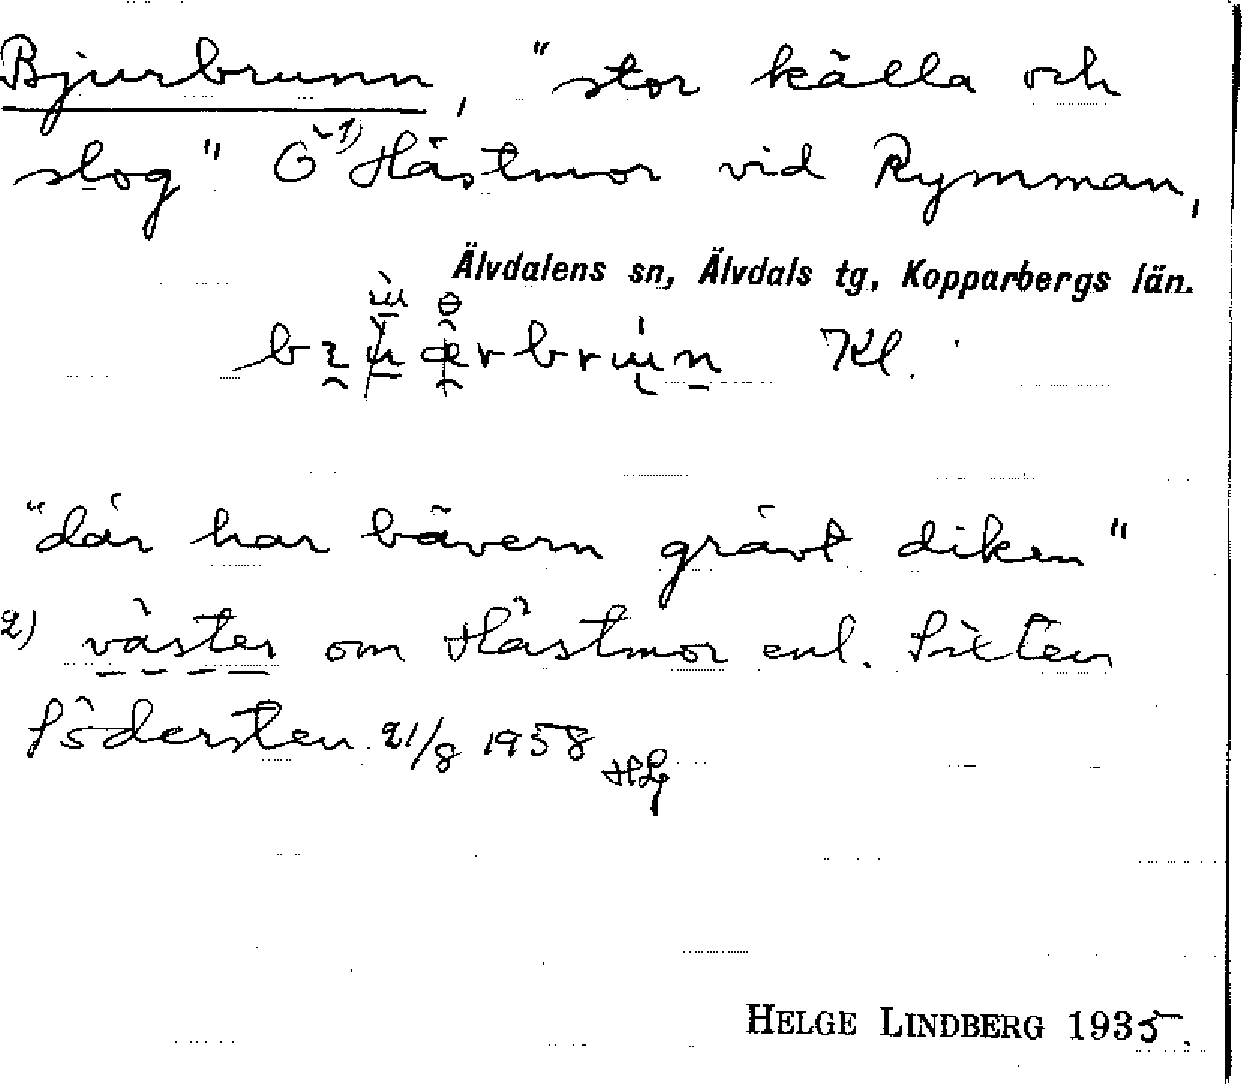 Bjurbrunn, "stor källa och
slog" Ö ¹⁾ Hästmor vid Rymman,
Älvdalens sn, Älvdals tg, Kopparbergs län.
Kl.
"där har bävern grävt diken"
2) väster om Hästmor enl. Sixten
Södersten 21/8 1958 HLg
HELGE LINDBERG 1935.